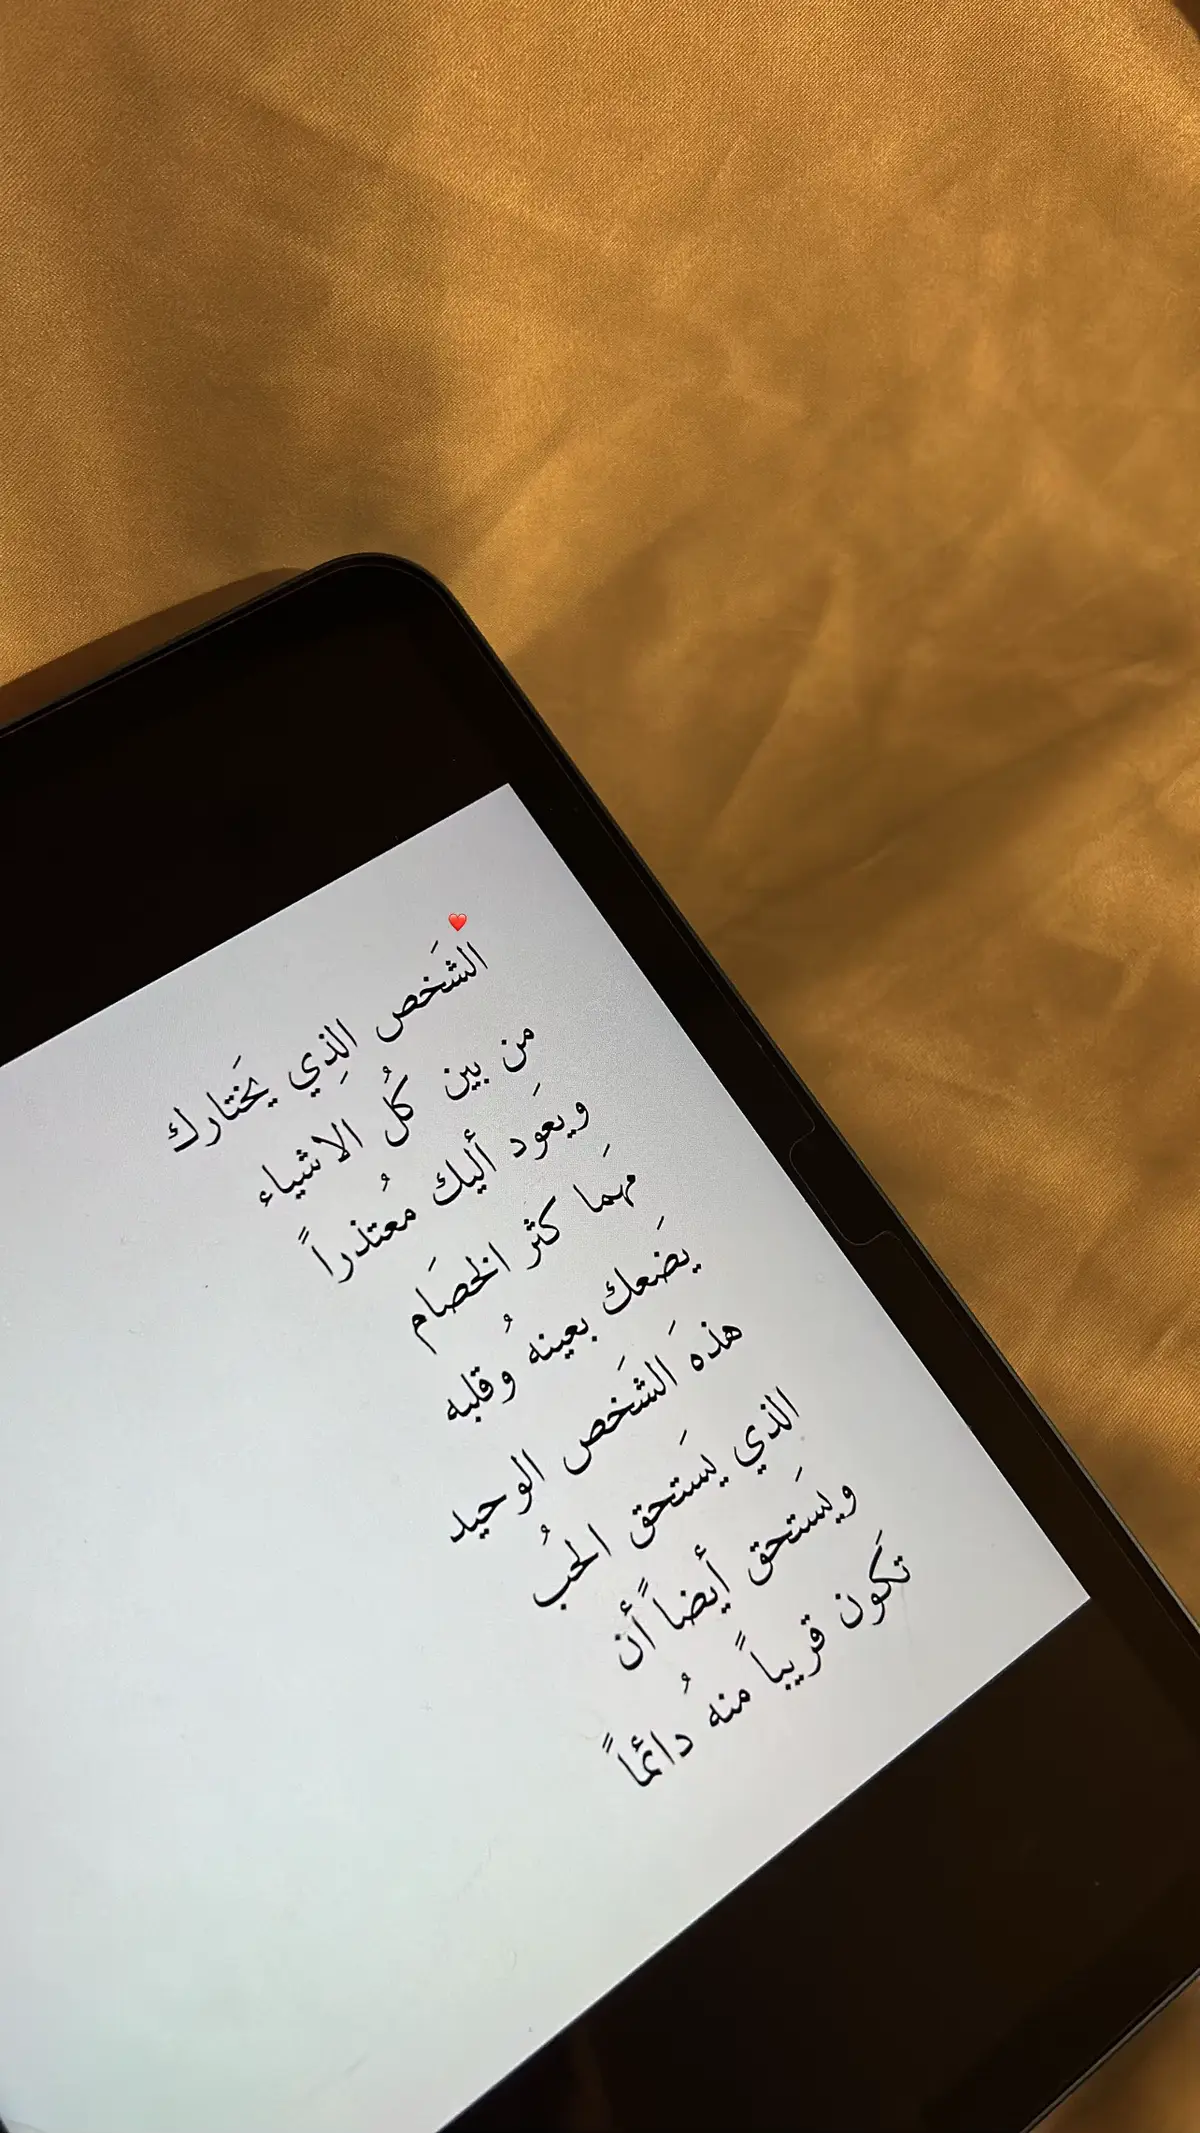 ❤️
الشَخص الذِي يَختارك
من بين كُل الاشياء
ويعَود أليك مُعتذراً
مهَما كثر الخصَام
يضَعك بعينه وُقلبه
هذه الشَخص الوحيد
الذي يسَتحق الحُب
ويسَتحق أيضاً أن
تكَون قريباً منهُ دائماً